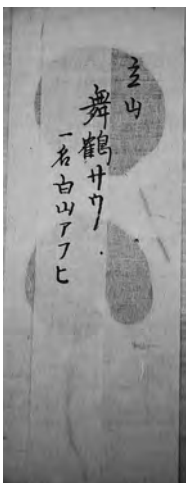 立山
舞鶴サウ
一名白山アフヒ